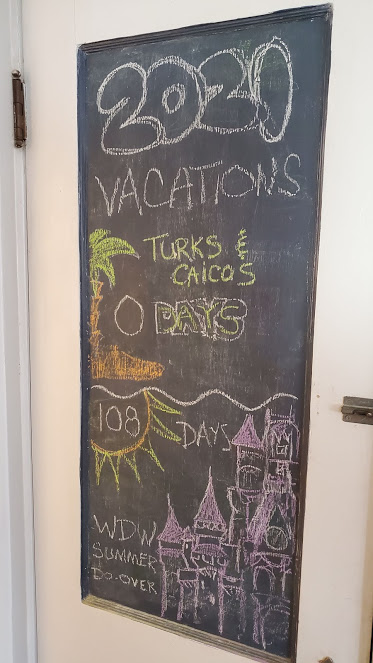 2021
VACATIONS
TURKS &
CAICOS
0 DAYS
108 DAYS
WDW
SUMMER
DO-OVER